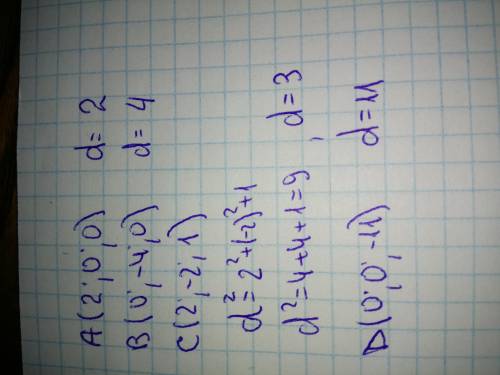 A(2;0;0) d=2
B(0;-4;0) d=4
C(2;-2;1)
d²=2²+(-2)²+1
d²=4+4+1=9, d=3
D(0;0;-11) d=11